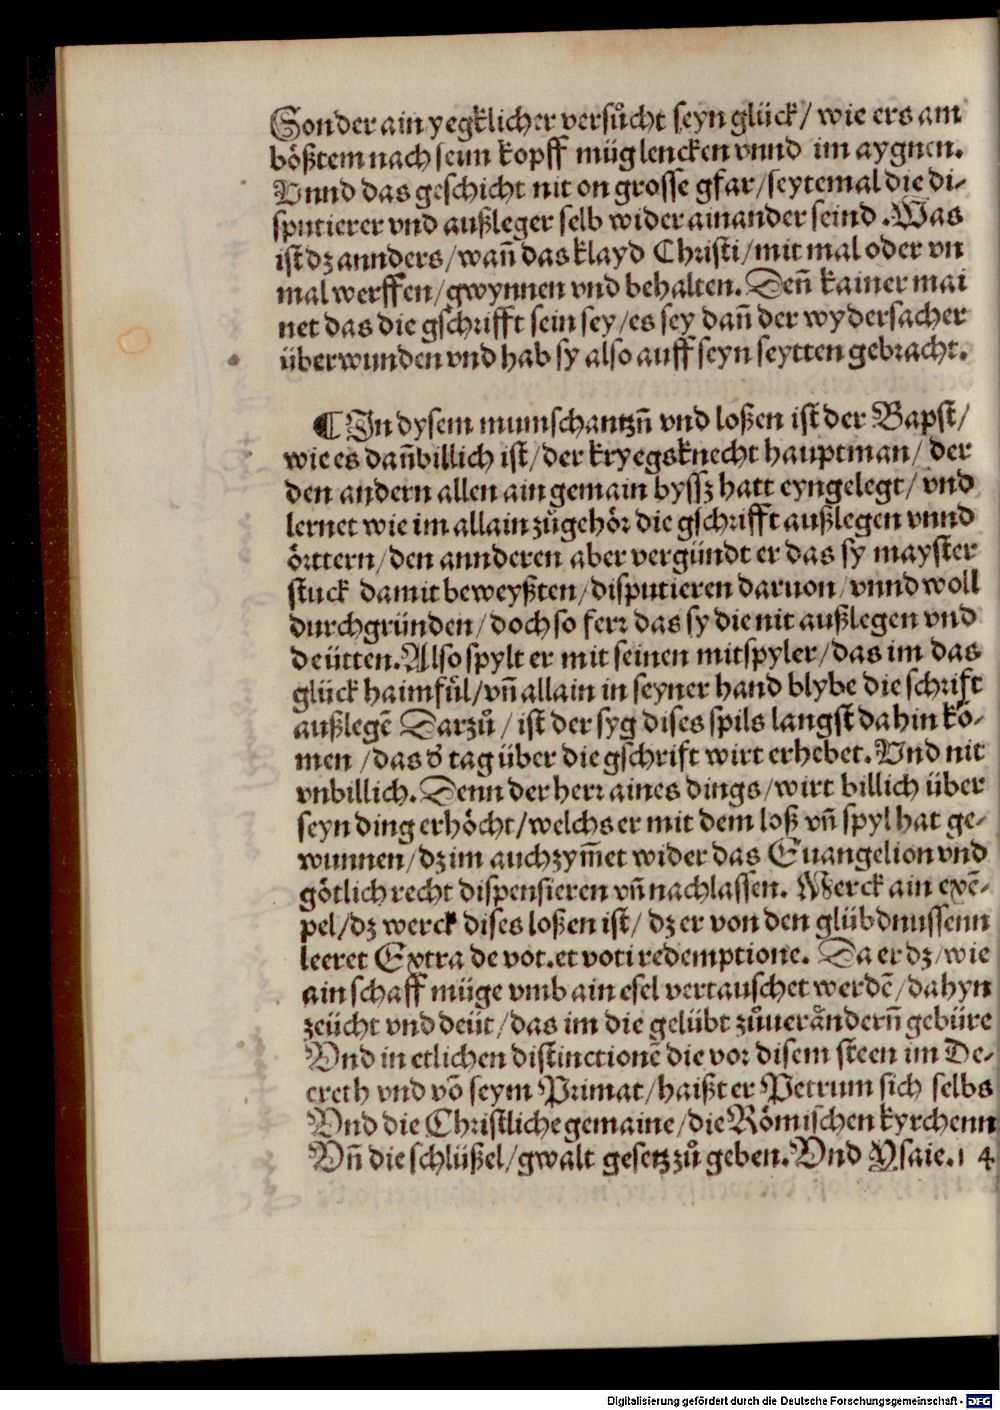 Sonder ain yegklicher versůcht seyn glück/ wie ers am
bößtem nach seim kopff müg lencken vnnd im aygnen.
Vnnd das geschicht nit on grosse gfar/seytemal die di-
sputierer vnd außleger selb wider ainander seind. Was
ist dz annders/wañ das klayd Christi/mit mal oder vn
mal werffen/gwynnen vnd behalten. Deñ kainer mai
net das die gschrifft sein sey/es sey dañ der wydersacher
überwunden vnd hab sy also auff seyn seytten gebracht.
¶ In dysem mumschantzñ vnd loßen ist der Bapst/
wie es dañ billich ist/der kryegsknecht hauptman/ der
den andern allen ain gemain byssz hatt eyngelegt/ vnd
lernet wie im allain zůgehör die gschrifft außlegen vnnd
örttern/den annderen aber vergündt er das sy mayster
stuck damit beweyßten/disputieren daruon/vnnd woll
durchgründen/doch so ferr das sy die nit außlegen vnd
deütten. Also spylt er mit seinen mitspyler/das im das
glück haimfül/vñ allain in seyner hand blybe die schrift
außlegē Darzů/ ist der syg dises spils langst dahin kō-
men /das d̕ tag über die gschrift wirt erhebet. Vnd nit
vnbillich. Denn der herr aines dings/wirt billich über
seyn ding erhöcht/welchs er mit dem loß vñ spyl hat ge-
wunnen/dz im auch zym̃et wider das Euangelion vnd
götlich recht dispensieren vñ nachlassen. Merck ain exē-
pel/dz werck dises loßen ist/ dz er von den glübdnussenn
leeret Extra de vot. et voti redemptione. Da er dz/wie
ain schaff müge vmb ain esel vertauschet werdē/dahyn
zeücht vnd deüt/das im die gelübt zůuerändern̄ gebüre
Vnd in etlichen distinctionē die vor disem steen im De-
creth vnd vō seym Primat/haißt er Petrum sich selbs
Vnd die Christliche gemaine/die Römischen kyrchenn
Vñ die schlüßel/gwalt gesetz zů geben. Vnd Ysaie. 14
Digitalisierung gefördert durch die Deutsche Forschungsgemeinschaft - DFG